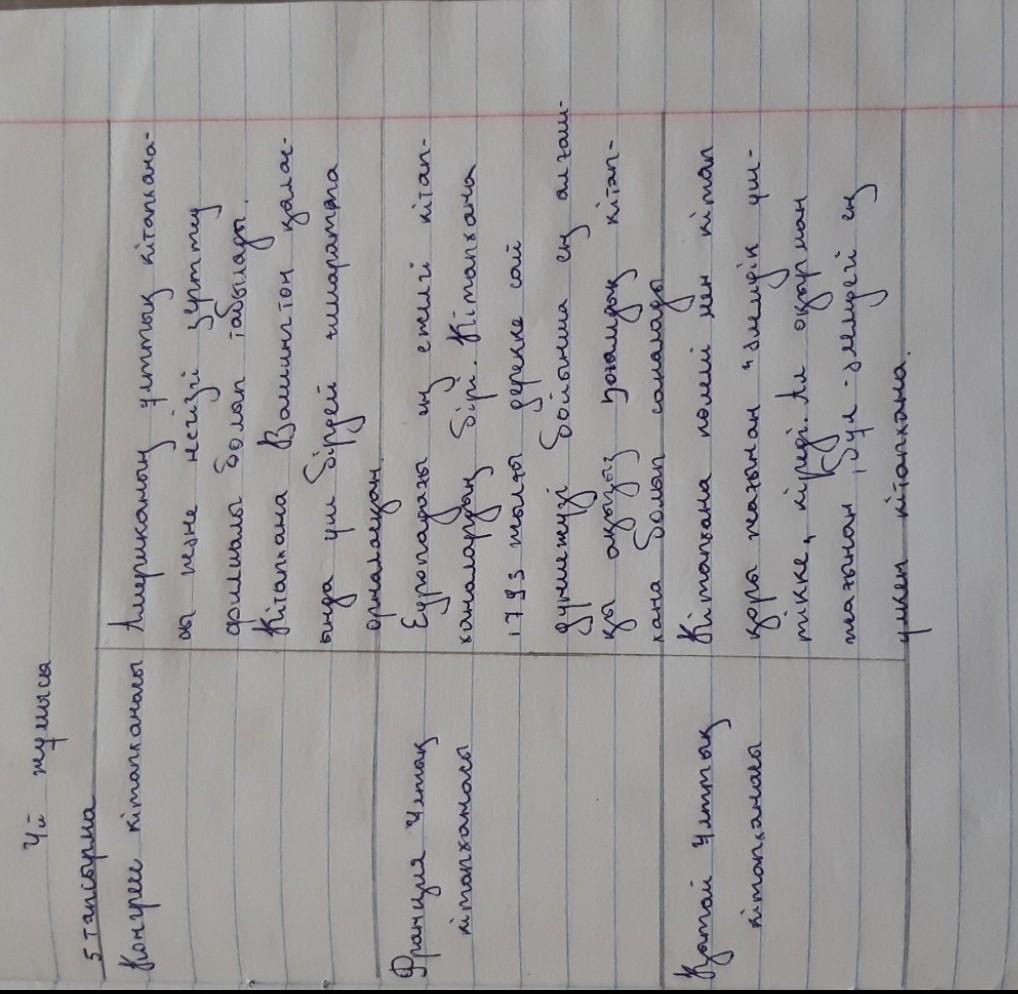 Үй жұмысы
5 тапсырма
Конгресс кітапханасы
Американың ұлттық кітапхана-
сы және негізгі зерттеу
филиалы болып табылады.
Кітапхана Вашингтон қалас-
ында үш бірдей ғимаратта
орналасқан.
Франция Ұлттық
кітапханасы
Еуропадағы ең ежелгі кітап-
ханалардың бірі. Кітапхана
1795 жылғы дерекке сай
дүниежүзі бойынша ең алғаш-
қы ақысыз қоғамдық кітап-
хана болып саналады
Қытай Ұлттық
кітапханасы
Кітапхана көлемі мен кітап
қоры жағынан "әлемдік үш-
тікке" кіреді. Ал оқырман
жағынан, бұл - әлемдегі ең
үлкен кітапхана.